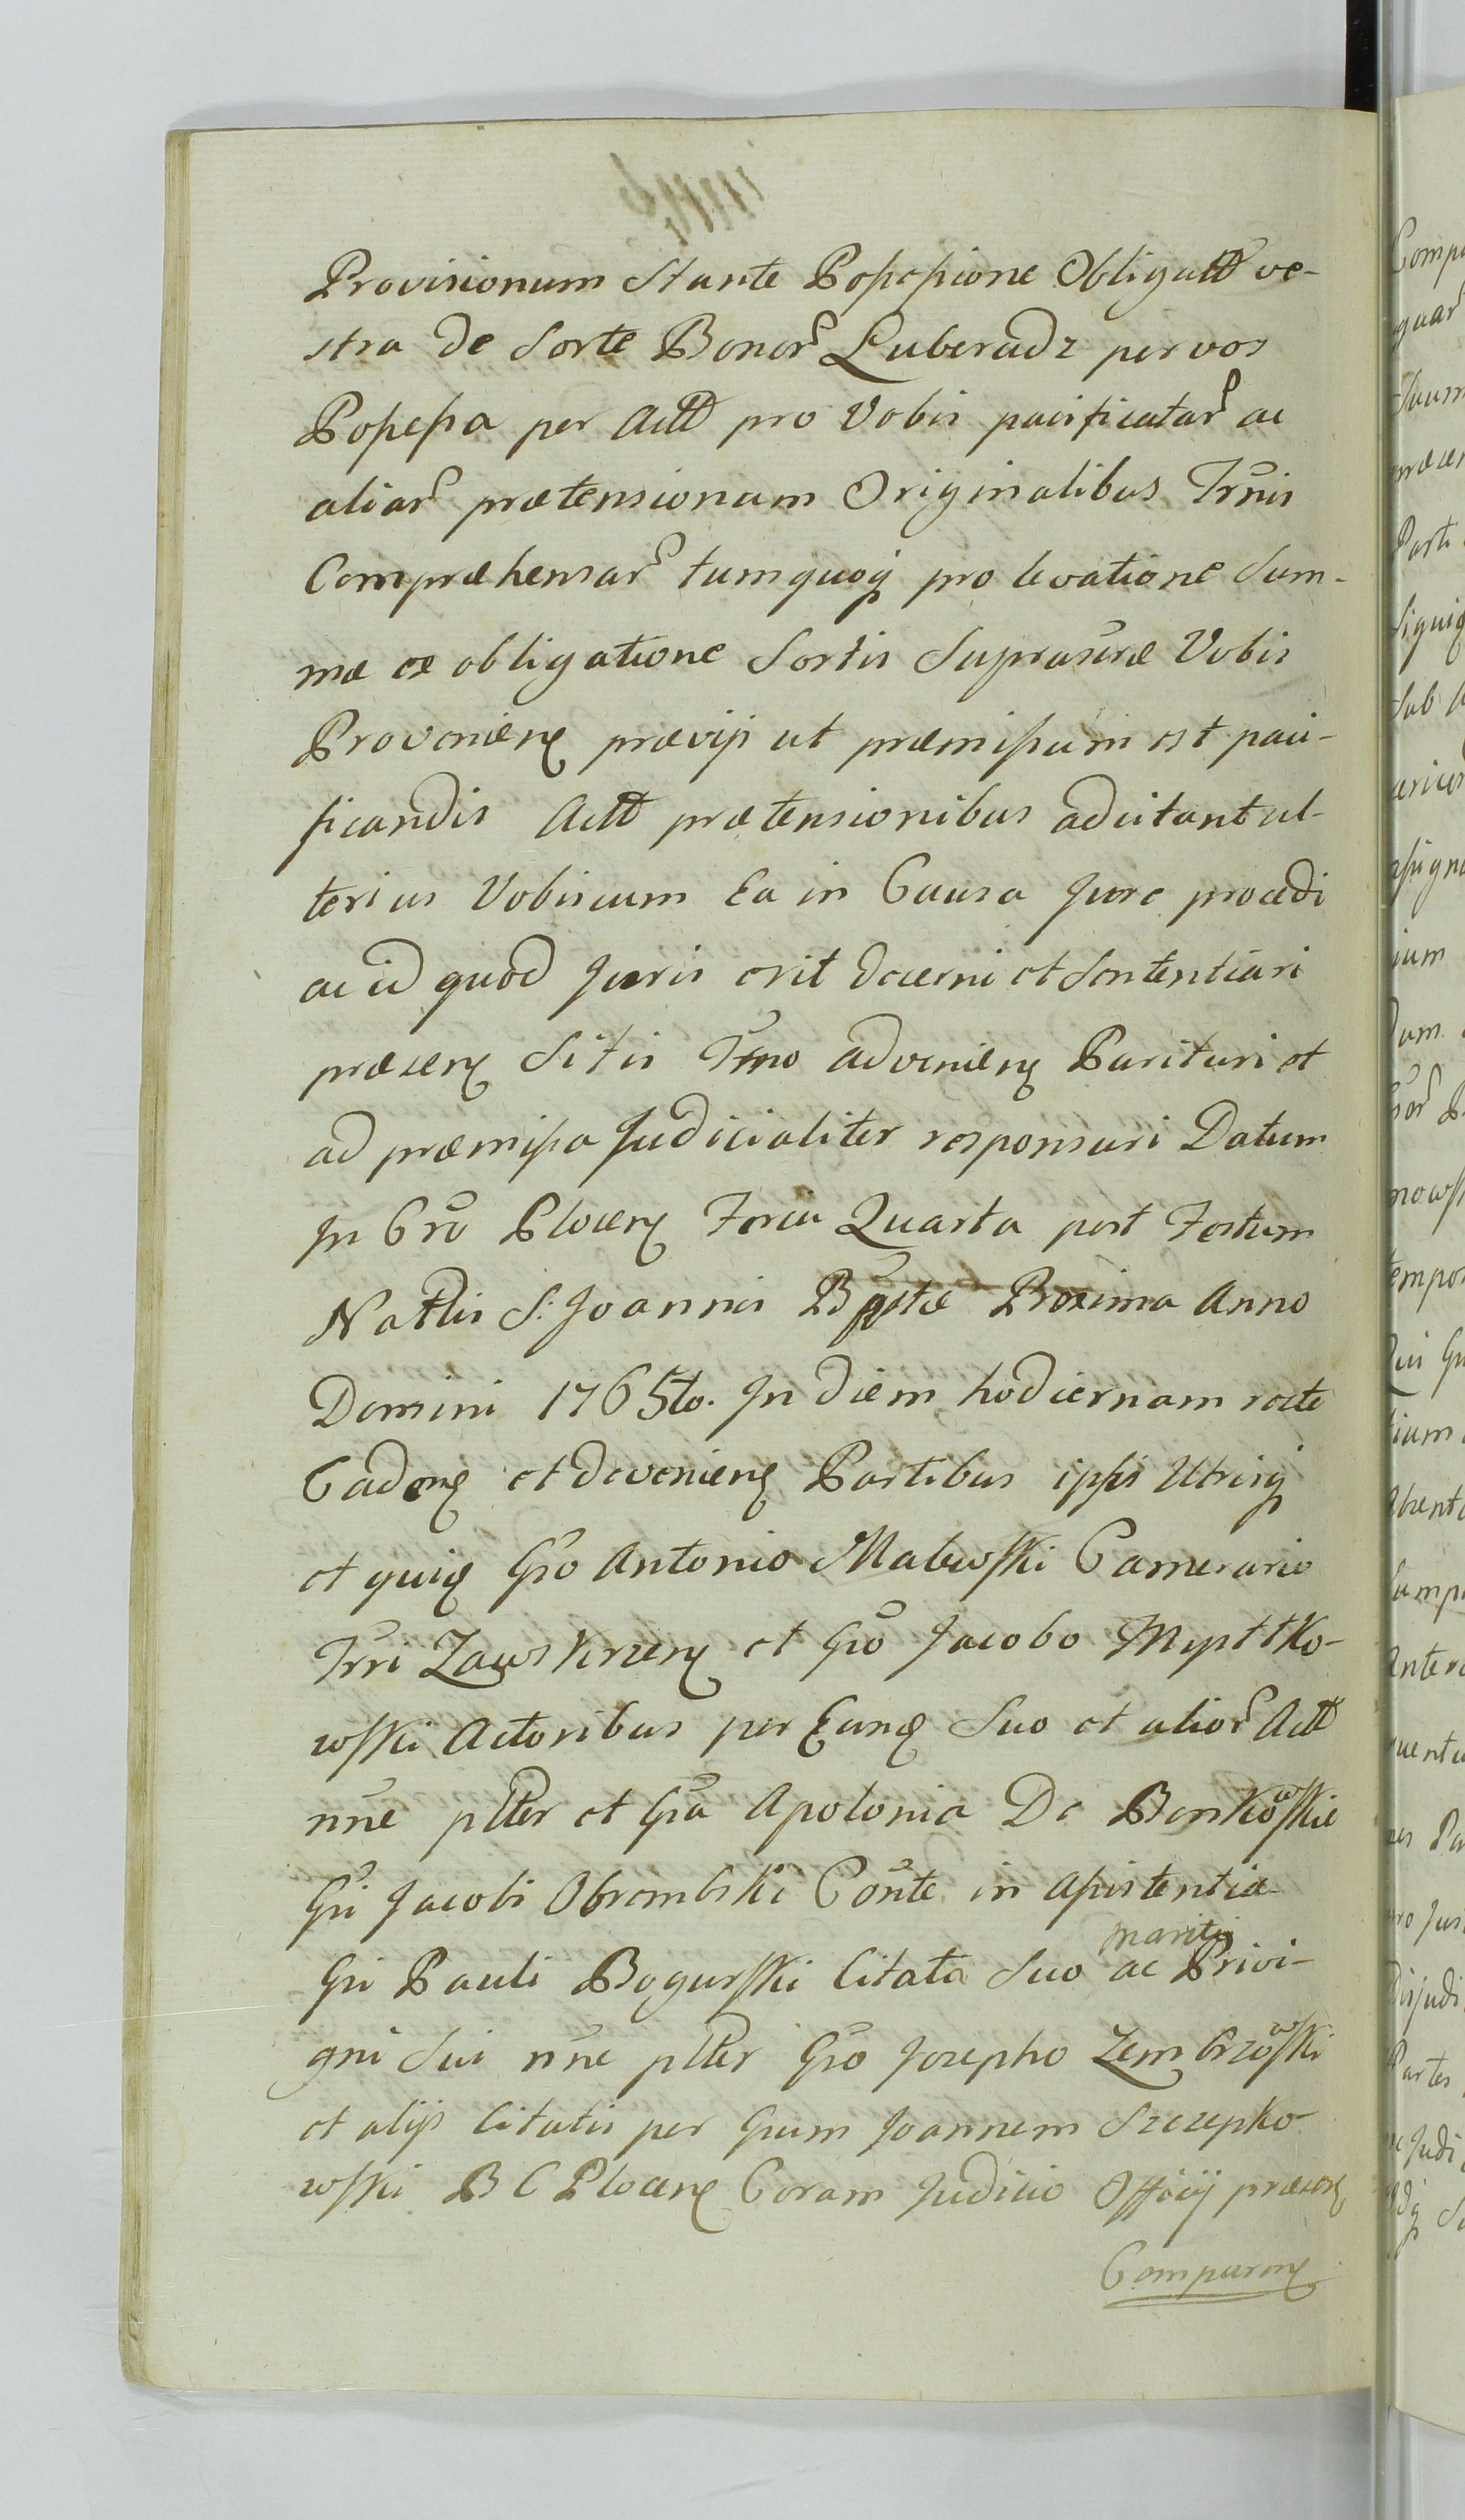 Provisionum Stante Possessione Obligatt ve-
stra de Sorte Bonor Luberadz per vos
Possessa per Actt pro Vobis pacificatar ac
aliar prætensionum Originalibus Trnis
Compræhensar tum quoq pro levatione Sum-
mæ ex obligatione Sortis Suprascræ Vobis
Provenien prævijs ut præmissum est paci-
ficandis Actt prætensionibus adcitant ul-
terius Vobiscum Ea in Causa Jure procedi
ac id quod Juris erit decerni et Sententiari
præsen Sitis Trno advenien Parituri et
ad præmissa Judicialiter responsuri Datum
In Cro Plocen Feria Quarta post Festum
Natlis S: Joannis Bapstæ Proxima Anno
Domini 1765to. In diem hodiernam recte
Caden et devenien Partibus ipsis Utrisq
et quid Gso Antonio Malewski Camerario
Trri Zawskrzen et Gso Jacobo Mystko-
wski Actoribus per Eund Suo et alior Actt
nne plter et Gsa Apolonia De Benkowskie
Gsi Jacobi Obrembski Conte in Assistentia
Gsi Pauli Bogurski Citata Suo maritiq ac Privi-
gni Sui nne plter Gso Josepho Zembrzowski
et alijs Citatis per Gsum Joannem Szczepko-
wski B C Plocen Coram Judicio Officij præsen
Comparen